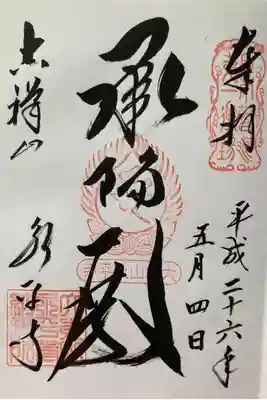 奉拝
平成二十六年
五月四日
承陽殿
吉祥山
永平寺